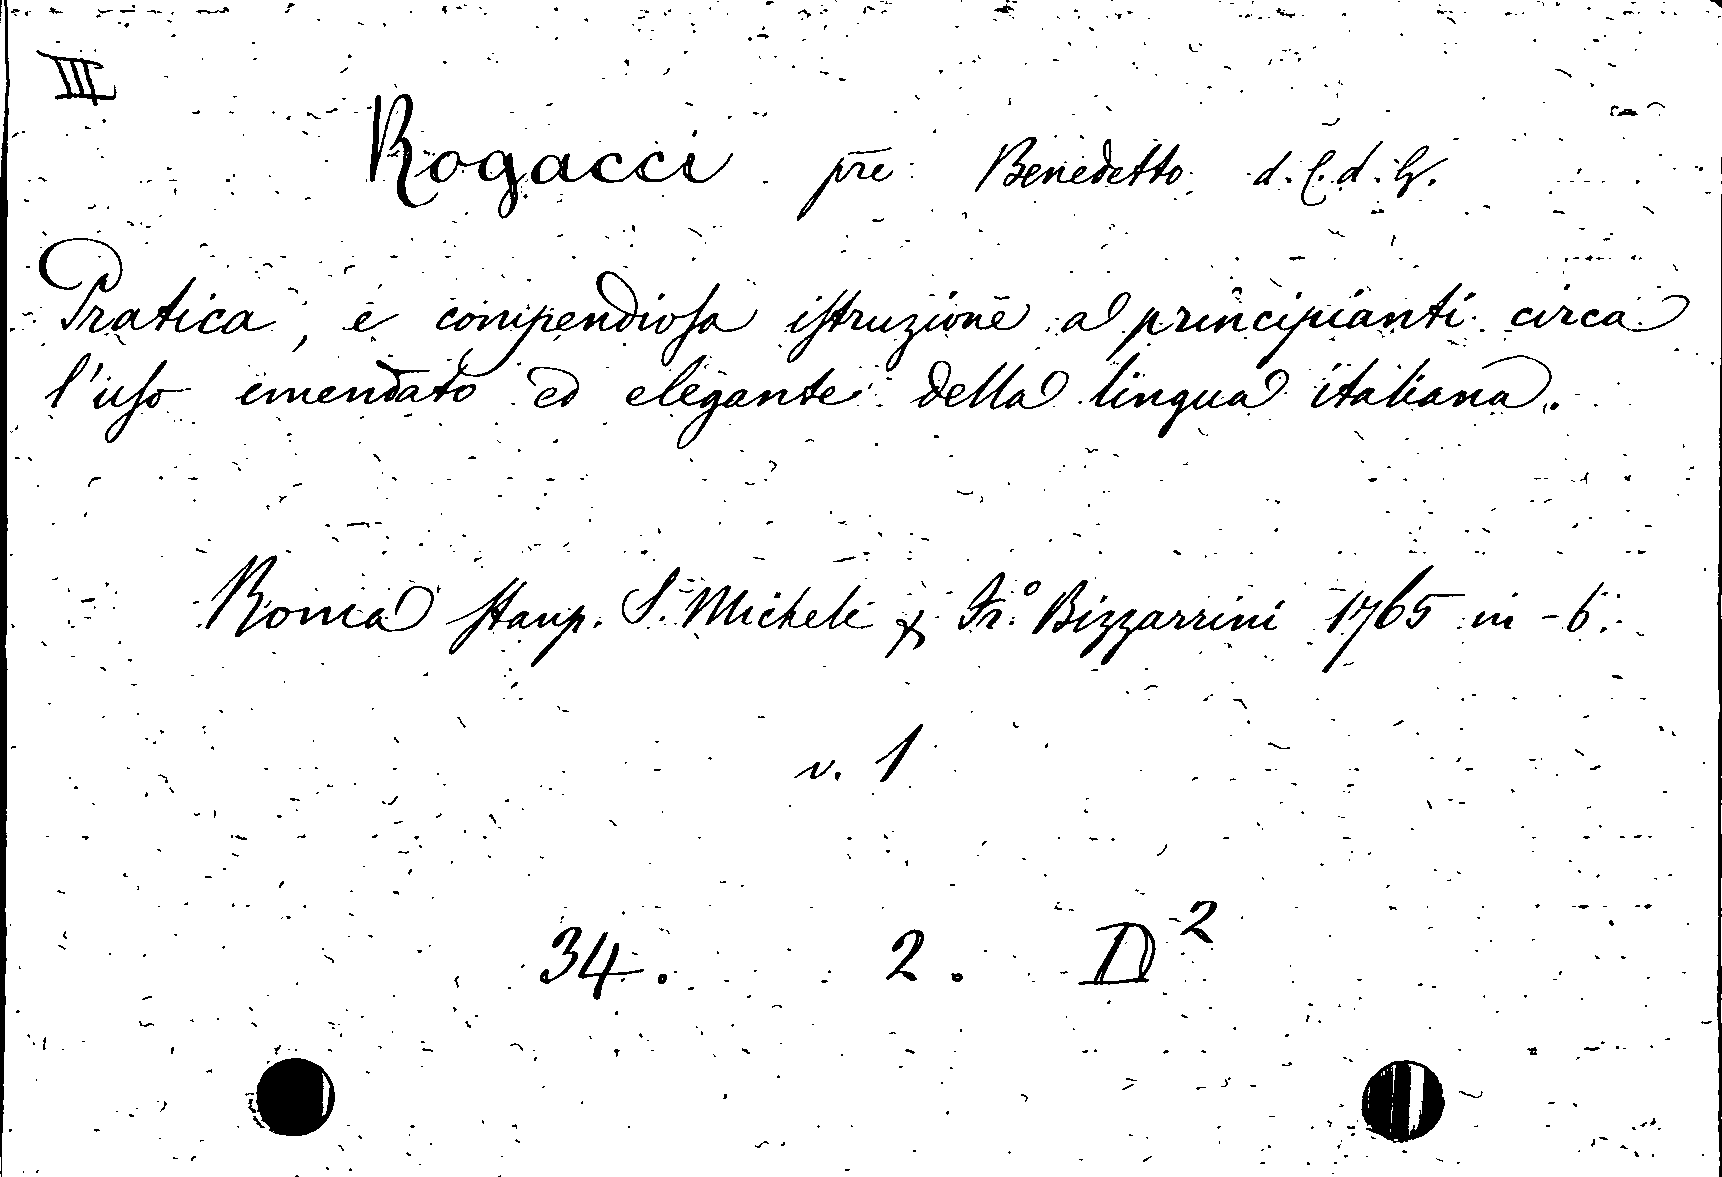 III
Rogacci pre Benedetto d. C. d. G.
Pratica, e compendiosa istruzione a' principianti circa
l'uso emendato ed elegante della lingua italiana.
Roma stamp. S. Michele x Fr.º Bizzarrini 1765 in-6.
v. 1
34. 2. D²